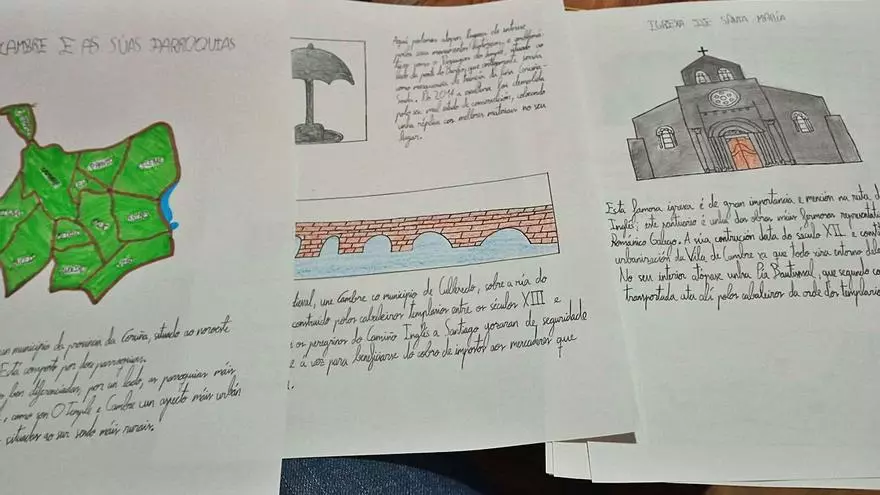 CAMBRE E AS SÚAS PARROQUIAS
CAMBRE
un municipio da provincia da Coruña, situado ao noroeste
Está composto por doce parroquias.
ben diferenciadas, por un lado, as parroquias máis
, como son O Temple e Cambre cun aspecto máis urbán
situadas ao sur sendo máis rurais.
Aquí podemos algúns lugares de interese
polos seus monumentos
como o Paraugas do Temple, situado ao
lado da ponte do Burgo, que antigamente servía
como marquesiña de tranvía da liña Coruña-
Sada. En 2014 a escultura foi demolida
polo seu mal estado de conservación, colocando
unha réplica con mellores materiais no seu
lugar.
dieval, une Cambre co municipio de Culleredo, sobre a ría do
construído polos cabaleiros templarios entre os séculos XIII e
os peregrinos do Camiño Inglés a Santiago gozaran de seguridade
e á vez para beneficiarse do cobro de impostos aos mercadores que
IGREXA DE SANTA MARÍA
Esta famosa igrexa é de gran importancia e mención na ruta do
Inglés; este santuario é unha das obras máis fermosas representati
Románico Galego. A súa construción data do século XII e
urbanización da Vila de Cambre xa que todo xira entorno dela
No seu interior atópase unha Pía Bautismal, que segundo co
transportada ata alí polos cabaleiros da orde dos templario